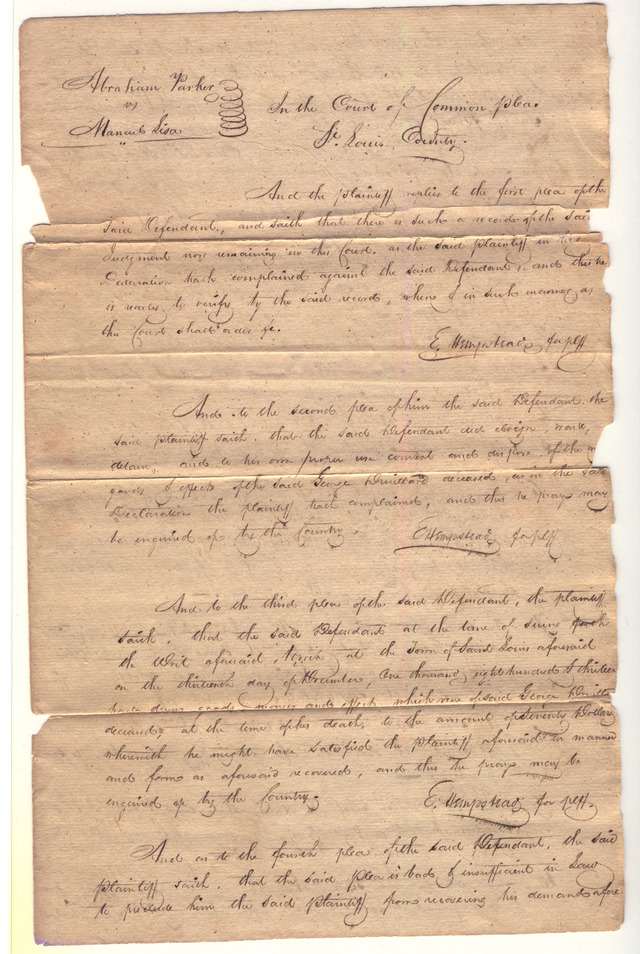 Abraham Parker
vs
Manuel Lisa
In the Court of Common plea.
St. Louis County.
And the plaintiff replies to the first plea of the
said Defendant, and saith that there is such a record of the said
Judgment now remaining in this Court. as the said plaintiff in his
Declaration hath complained against the said Defendant, and this he
is ready to verify by the said record, when & in such manner as
this Court shall order &c.
E. Hempstead for plff
And to the second plea of him the said Defendant. the
said plaintiff saith, that the said Defendant did
detain, and to his own proper use convert and dispose of the
goods & effects of the said George Druillard deceased, as in the said
Declaration the plaintiff hath complained, and this he prays may
be enquired of by the Country.
E Hempstead for plff
And to the third plea of the said Defendant, the plaintiff
saith, that the said Defendant at the time of suing forth
the Writ aforesaid at the Town of Saint Louis aforesaid
on the thirteenth day of December, One thousand eight hundred & thirteen
goods, monies and effects which were of said George Druillard
deceased, at the time of his death, to the amount of seventy Dollars
wherewith he might have satisfied the plaintiff aforesaid in manner
and form as aforesaid recovered, and this the prays may be
enquired of by the Country.
E. Hempstead for plff.
And as to the fourth plea of the said Defendant, the said
plaintiff saith, that the said plea is bad, & insufficient in Law
to preclude him the said plaintiff from recovering his demand afore